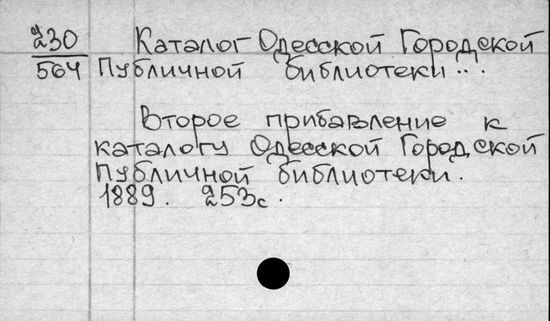 230 Каталог Одесской Городской
564 Публичной библиотеки...
Второе прибавление к
каталогу Одесской Городской
Публичной библиотеки.
1889. 253с.